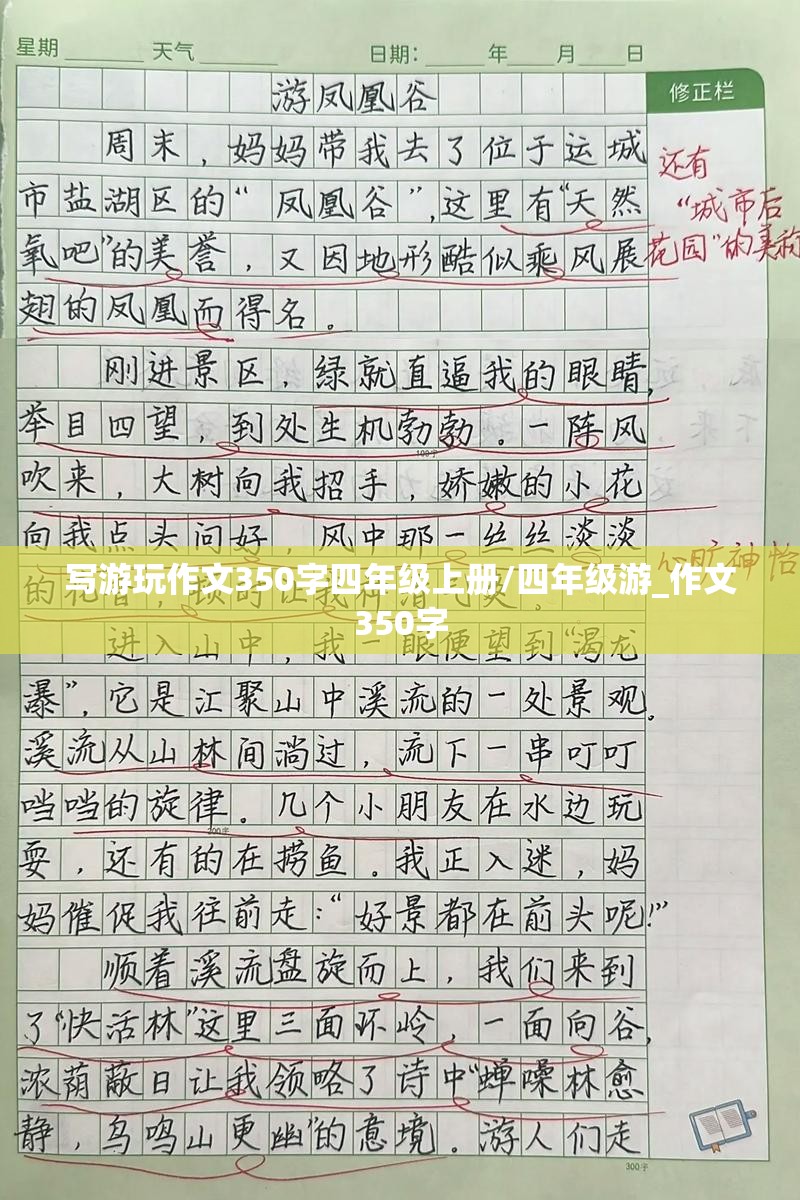 星期 天气 日期: 年 月 日
修正栏
游凤凰谷
周末，妈妈带我去了位于运城
市盐湖区的“凤凰谷”，这里有“天然
氧吧”的美誉，又因地形酷似乘风展
翅的凤凰而得名。
还有
“城市后
花园”的美称
刚进景区，绿就直逼我的眼睛，
举目四望，到处生机勃勃。一阵风
100字
吹来，大树向我招手，娇嫩的小花
向我点头问好，风中那一丝丝淡淡
心旷神怡
的花香，顿时让我神清气爽
写游玩作文350字四年级上册/四年级游_作文
350字
进入山中，我一眼便望到“渴龙
瀑”，它是汇聚山中溪流的一处景观。
溪流从山林间淌过，流下一串叮叮
当当的旋律。几个小朋友在水边玩
200字
耍，还有的在捞鱼。我正入迷，妈
妈催促我往前走：“好景都在前头呢！”
顺着溪流盘旋而上，我们来到
了“快活林”这里三面环岭，一面向谷，
浓荫蔽日让我领略了诗中“蝉噪林愈
静，鸟鸣山更幽”的意境。游人们走
300字